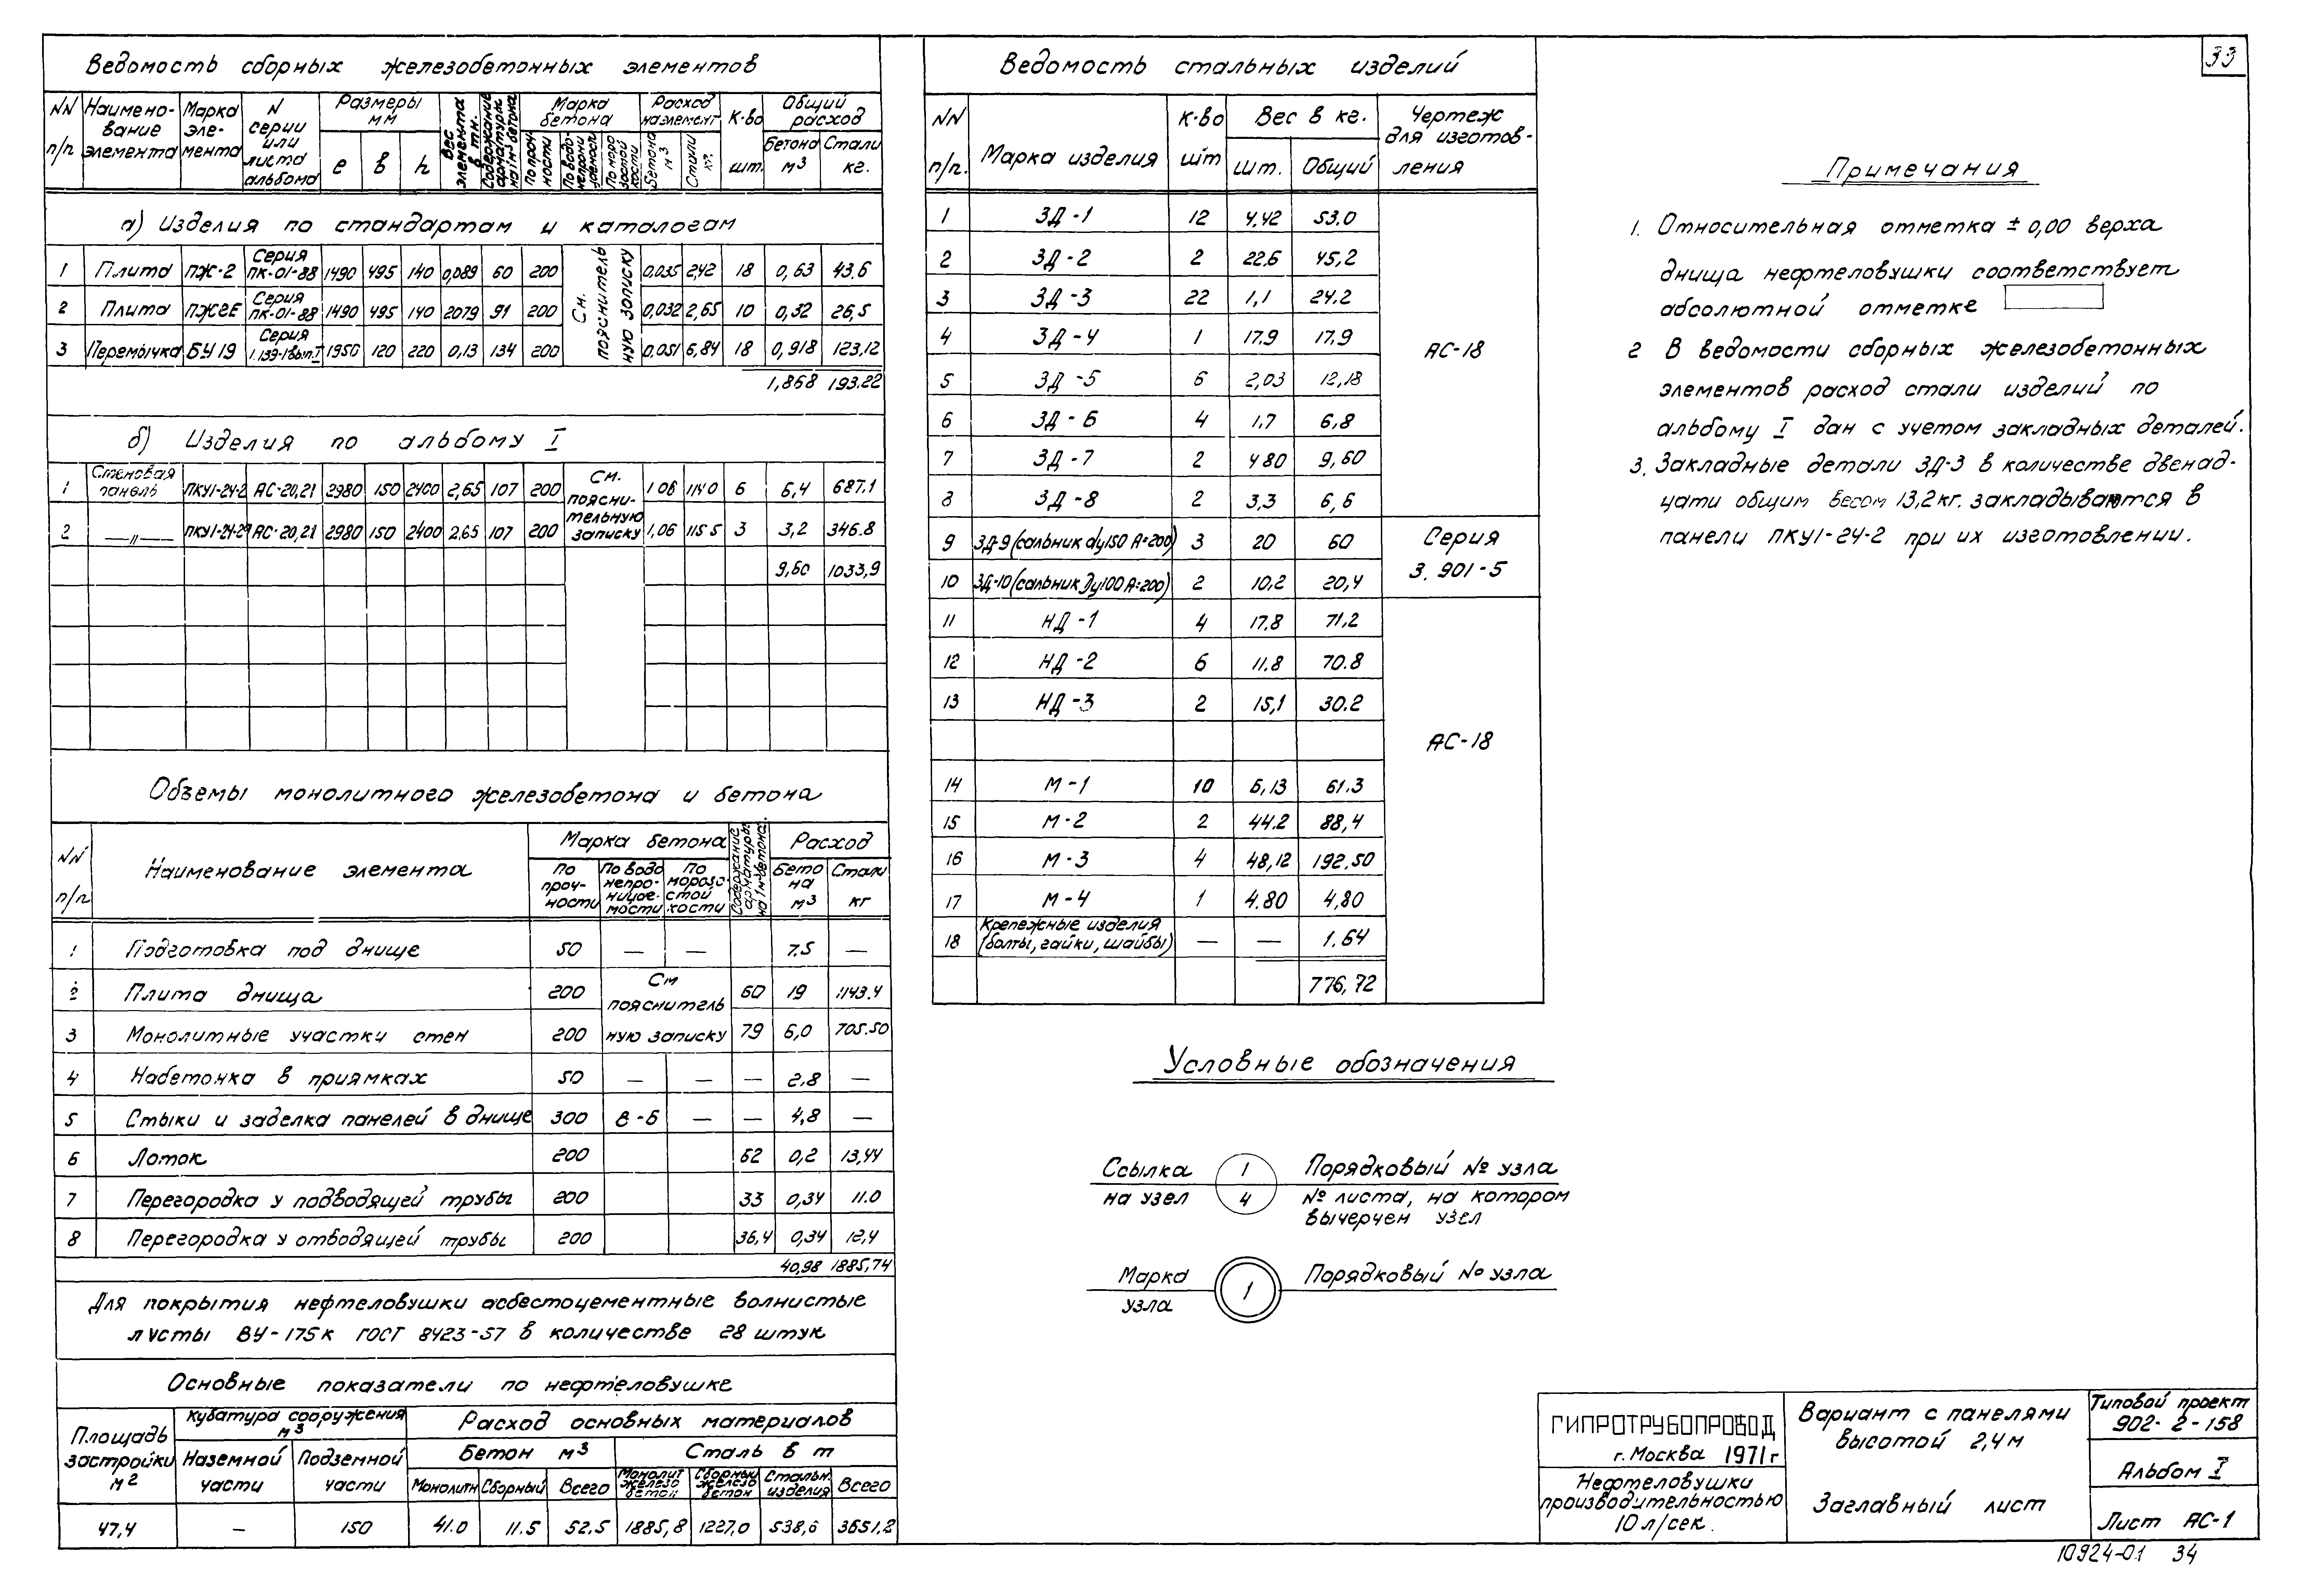 33
Ведомость сборных железобетонных элементов
NN п/п Наименование элемента Марка элемента N серии или листа альбома Размеры мм е в h Вес элемента в тн. Содержание арматуры на 1м³ бетона Марка бетона По прочности По водонепроницаемости По морозостойкости Расход на элемент Бетона м³ Стали кг. К-во шт. Общий расход Бетона м³ Стали кг.
а) Изделия по стандартам и каталогам
1 Плита ПЖ-2 Серия ПК-01-88 1490 495 140 0,089 60 200 См. пояснительную записку 0,035 2,42 18 0,63 43.6
2 Плита ПЖ2Е Серия ПК-01-88 1490 495 140 2079 91 200 0,032 2,65 10 0,32 26,5
3 Перемычка БУ19 Серия 1.139-1 вып. I 1950 120 220 0,13 134 200 0,051 6,84 18 0,918 123,12
1,868 193.22
б) Изделия по альбому I
1 Стеновая панель ПКУ1-24-2 АС-20,21 2980 150 2400 2,65 107 200 См. пояснительную записку 1.06 114.0 6 6,4 687.1
2 —„— ПКУ1-24-2а АС-20,21 2980 150 2400 2,65 107 200 1,06 115.5 3 3,2 346.8
9,60 1033,9
Объемы монолитного железобетона и бетона
NN п/п Наименование элемента Марка бетона По прочности По водонепроницаемости По морозостойкости Содержание арматуры на 1м³ бетона. Расход Бетона м³ Стали кг
1 Подготовка под днище 50 — — 7.5 —
2 Плита днища 200 См пояснительную записку 60 19 1143.4
3 Монолитные участки стен 200 79 6,0 705.50
4 Набетонка в приямках 50 — — — 2.8 —
5 Стыки и заделка панелей в днище 300 В-6 — — 4,8 —
6 Лоток 200 62 0,2 13,44
7 Перегородка у подводящей трубы 200 33 0,34 11.0
8 Перегородка у отводящей трубы 200 36,4 0,34 12,4
40,98 1885,74
Для покрытия нефтеловушки асбестоцементные волнистые
листы ВУ-175к ГОСТ 8423-57 в количестве 28 штук
Основные показатели по нефтеловушке
Площадь застройки м² Кубатура сооружения м³ Наземной части Подземной части Расход основных материалов Бетон м³ Монолитн Сборный Всего Сталь в т Монолит железобетон Сборный железобетон Стальн. изделия Всего
47,4 — 150 41.0 11.5 52.5 1885,8 1227,0 538,6 3651,2
Ведомость стальных изделий
NN п/п. Марка изделия К-во шт Вес в кг. шт. Общий Чертеж для изготовления
1 ЗД-1 12 4,42 53.0
2 ЗД-2 2 22,6 45,2
3 ЗД-3 22 1,1 24.2
4 ЗД-4 1 17.9 17.9
АС-18
5 ЗД-5 6 2,03 12,18
6 ЗД-6 4 1.7 6,8
7 ЗД-7 2 4.80 9,60
8 ЗД-8 2 3,3 6,6
9 ЗД-9 (сальник dу150 А=200) 3 20 60 Серия
10 ЗД-10 (сальник Ду100 А=200) 2 10,2 20,4 3.901-5
11 НД-1 4 17,8 71,2
12 НД-2 6 11.8 70.8
13 НД-3 2 15,1 30.2
АС-18
14 М-1 10 6,13 61.3
15 М-2 2 44.2 88,4
16 М-3 4 48,12 192,50
17 М-4 1 4.80 4,80
18 Крепежные изделия (болты, гайки, шайбы) — — 1.64
776,72
Условные обозначения
Ссылка на узел 1 4 Порядковый № узла
№ листа, на котором
вычерчен узел
Марка узла 1 Порядковый № узла
Примечания
1. Относительная отметка ± 0,00 верха
днища нефтеловушки соответствует
абсолютной отметке
2 В ведомости сборных железобетонных
элементов расход стали изделий по
альбому I дан с учетом закладных деталей.
3. Закладные детали ЗД-3 в количестве двенад-
цати общим весом 13,2кг. закладываются в
панели ПКУ1-24-2 при их изготовлении.
ГИПРОТРУБОПРОВОД
г. Москва 1971г
Нефтеловушки
производительностью
10 л/сек.
Вариант с панелями
высотой 2,4м
Заглавный лист
Типовой проект
902-2-158
Альбом I
Лист АС-1
10924-01 34